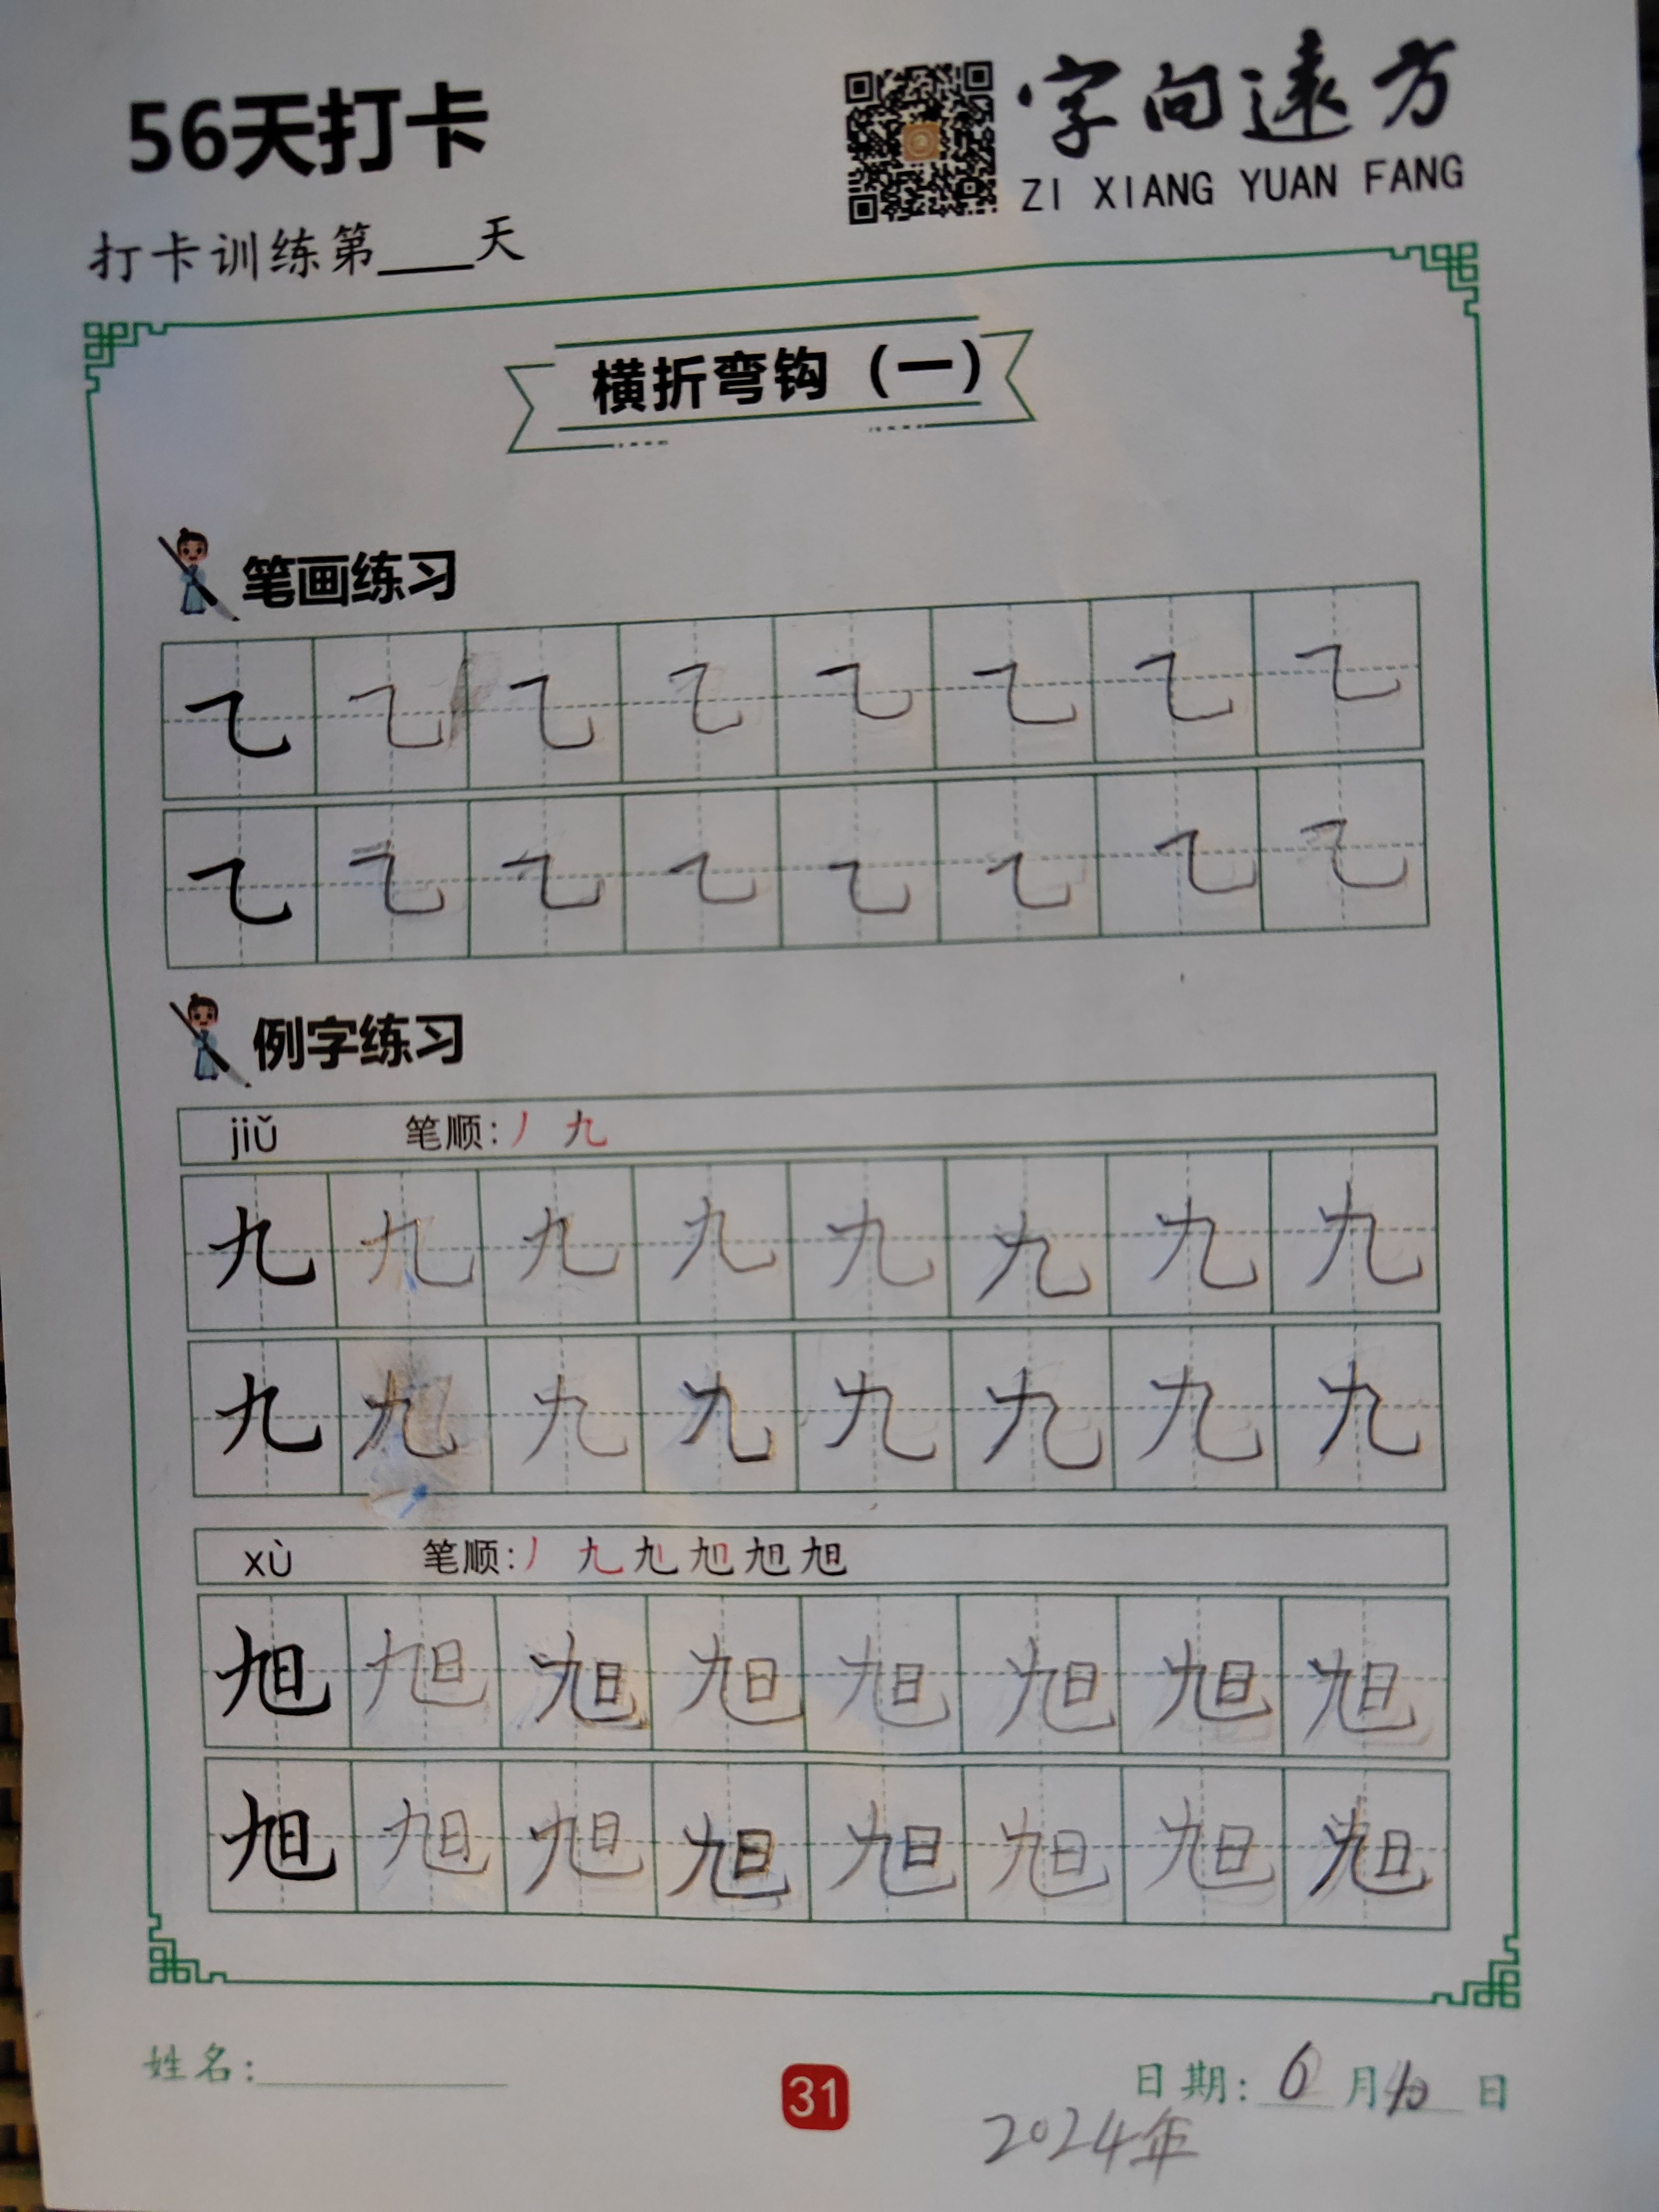 56天打卡
字向遠方
ZI XIANG YUAN FANG
打卡训练第____天
横折弯钩（一）
笔画练习
㇈ ㇈ ㇈ ㇈ ㇈ ㇈ ㇈ ㇈
㇈ ㇈ ㇈ ㇈ ㇈ ㇈ ㇈ ㇈
例字练习
jiǔ 笔顺:丿 九
九 九 九 九 九 九 九 九
九 九 九 九 九 九 九 九
xù 笔顺:丿 九 旭
旭 旭 旭 旭 旭 旭 旭 旭
旭 旭 旭 旭 旭 旭 旭 旭
姓名:
31
日期: 6 月 10 日
2024年